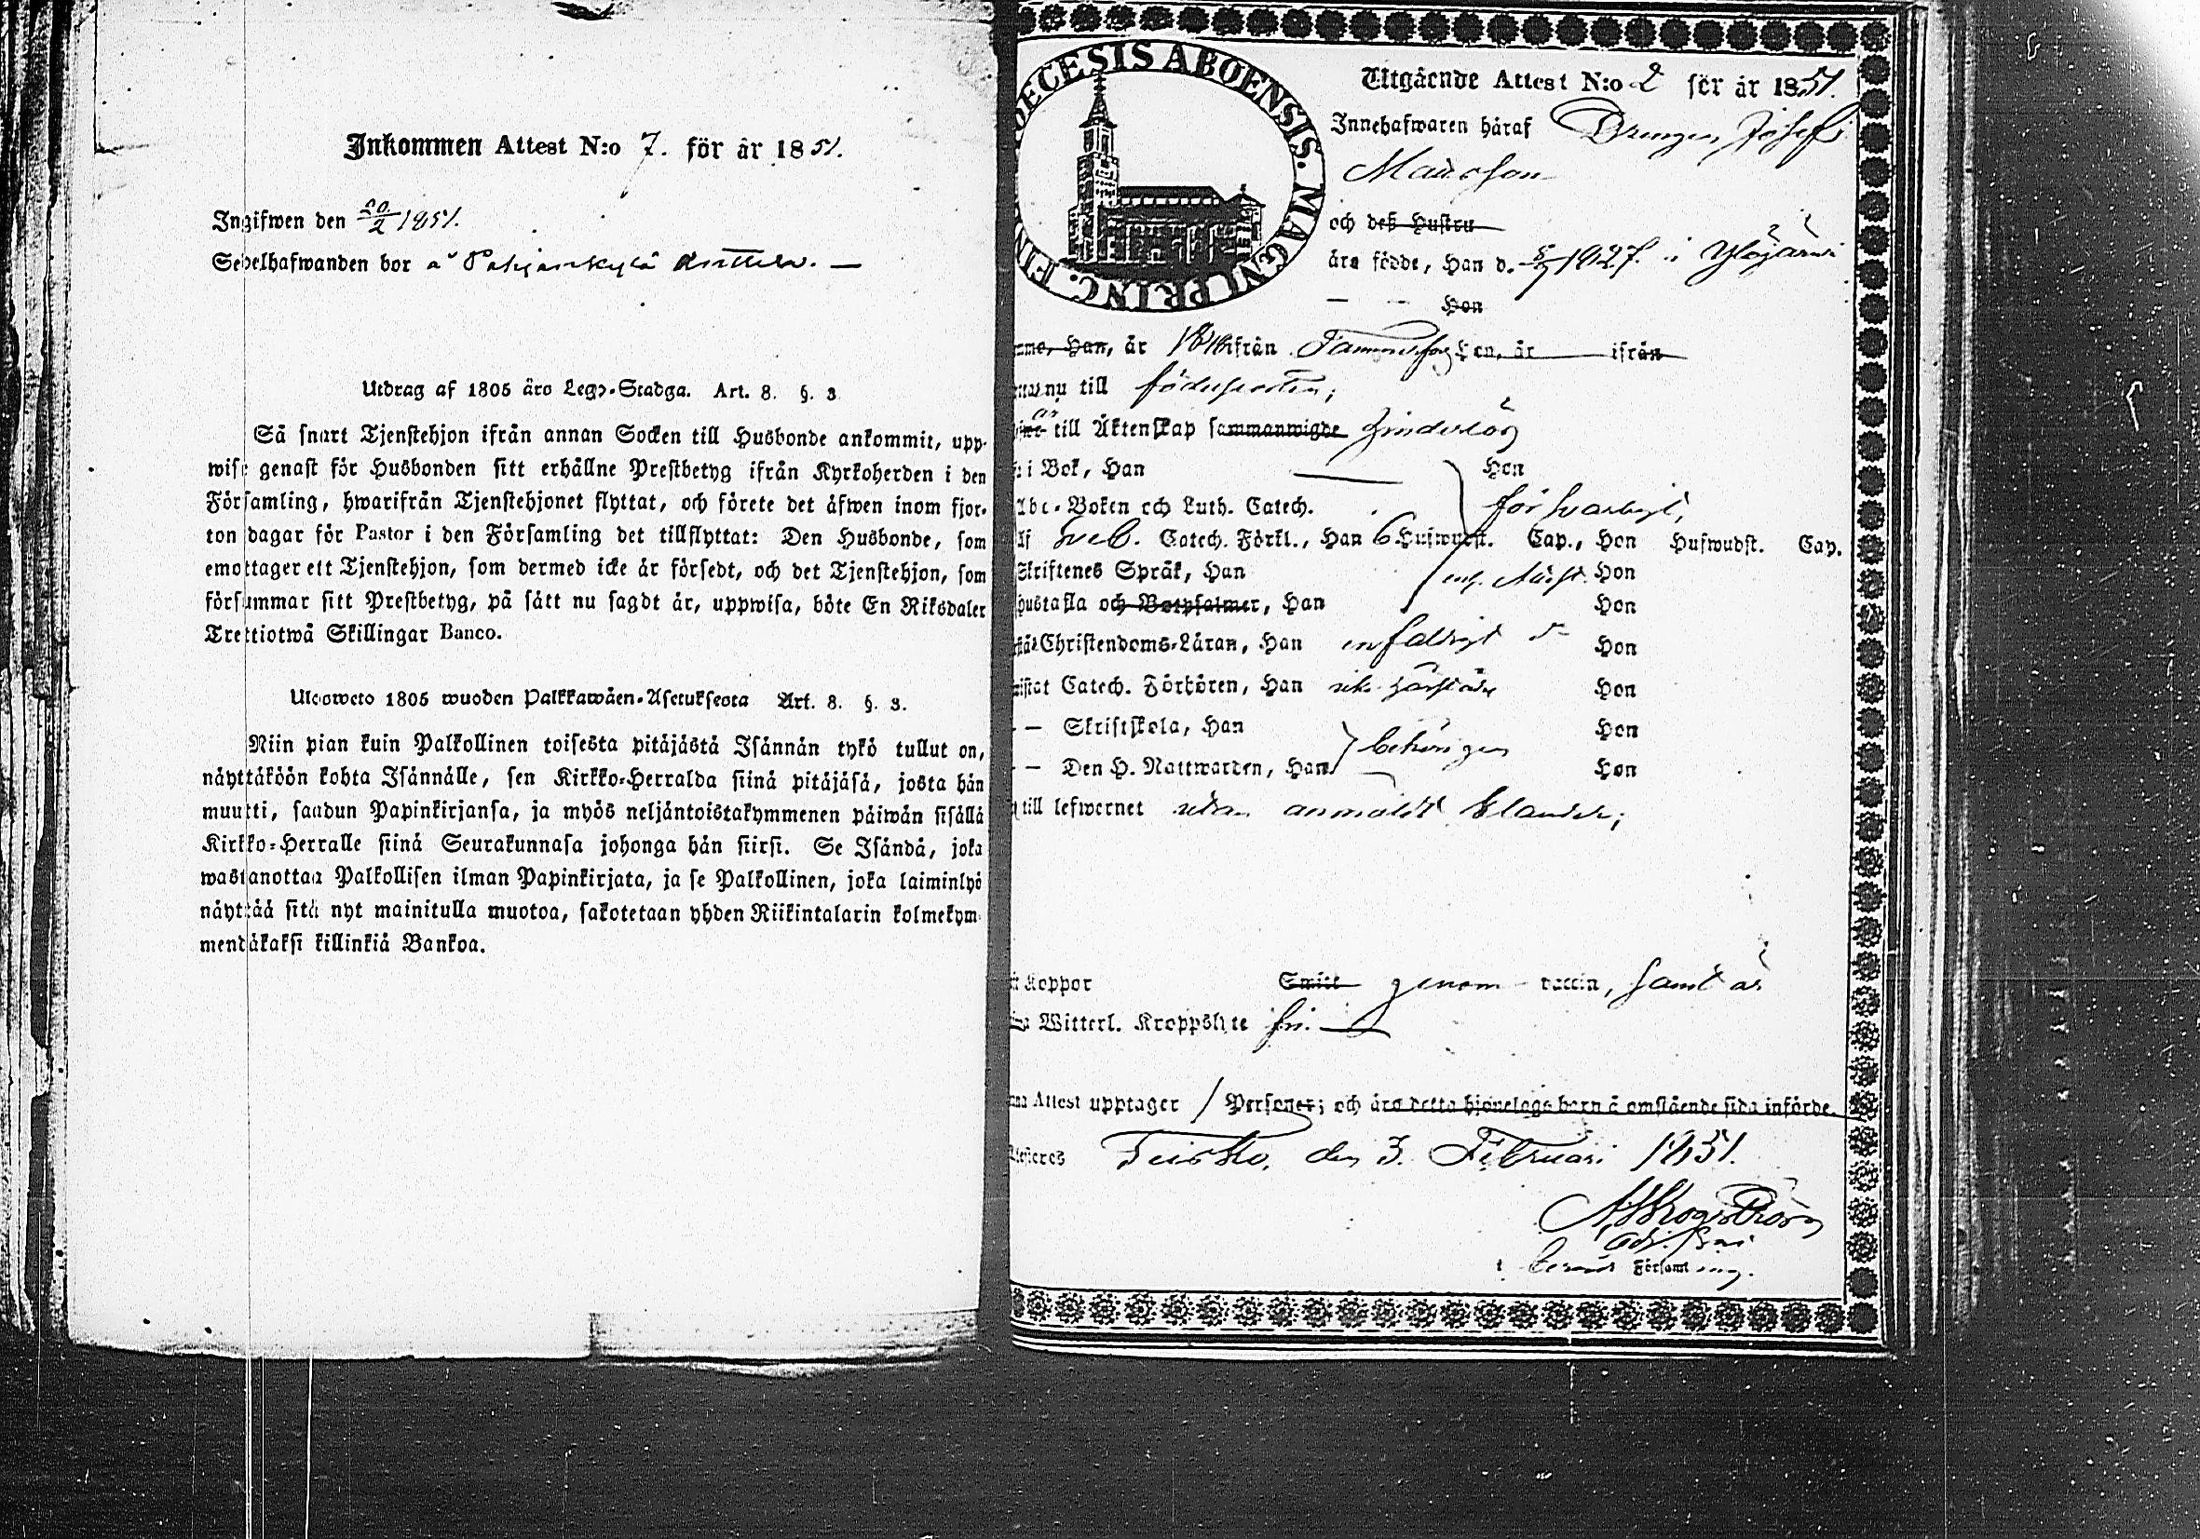 Inkommen Attest N:o 7. för år 1851.
Ingifwen den 20/2 1851.
Sedelhafwanden bor å Pohjankylä
Utdrag af 1805 års Lego-Stadga. Art. 8. §. 3
Så snart Tjenstehjon ifrån annan Socken till Husbonde ankommit, upp-
wise genast för Husbonden sitt erhållne Prestbetyg ifrån Kyrkoherden i den
Församling, hwarifrån Tjenstehjonet flyttat, och förete det äfwen inom fjor-
ton dagar för Pastor i den Församling det tillflyttat: Den Husbonde, som
emottager ett Tjenstehjon, som dermed icke är försedt, och det Tjenstehjon, som
försummar sitt Prestbetyg, på sätt nu sagdt är, uppwisa, böte En Riksdaler
Trettiotwå Skillingar Banco.
Ulosweto 1805 wuoden Palkkawäen-Asetuksesta Art. 8. §. 3.
Niin pian kuin Palkollinen toisesta pitäjästä Isännän tykö tullut on,
näyttäköön kohta Isännälle, sen Kirkko-Herralda siinä pitäjäsä, josta hän
muutti, saadun Papinkirjansa, ja myös neljäntoistakymmenen päiwän sisällä
Kirkko-Herralle siinä Seurakunnasa johonga hän siirsi. Se Isändä, joka
wastanottaa Palkollisen ilman Papinkirjata, ja se Palkollinen, joka laiminlyö
näyttää sitä nyt mainitulla muotoa, sakotetaan yhden Riikintalarin kolmekym
mendäkaksi killinkiä Bankoa.
DIOECESIS ABOENSIS. MAGNI PRINC. FINL.
Utgående Attest N:o 2 för år 1851.
Innehafwaren häraf Drengen Josef
Matsson
och deß Hustru
äro födde, Han d. 1827. i Ylöjärwi
Hon
Han, år ifrån Tammerfors Hon, år ifrån
nu till födelseorten;
är till Äktenskap sammanwigde hinderlös
i Bok, Han Hon
Abc-Boken och Luth. Catech. försvarligt,
Sveb. Catech. Förkl., Han 6 Hufwudst. Cap., Hon Hufwudst. Cap.
Skriftenes Språk, Han Hon
Hustafla och Botpsalmer, Han Hon
Christendoms-Läran, Han enfaldigt Hon
Catech. Förhören, Han Hon
— Skriftskola, Han Hon
— Den H. Nattwarden, Han behörigen Hon
till lefwernet utan anmäldt klander;
Koppor Smitt genom vaccin, samt är
Witterl. Kroppslyte fri.
Attest upptager 1 Personer; och äro detta hjonelags barn å omstående sida införde.
Teisko, den 3. Februari 1851.
A Skogström
i berörde Församling.